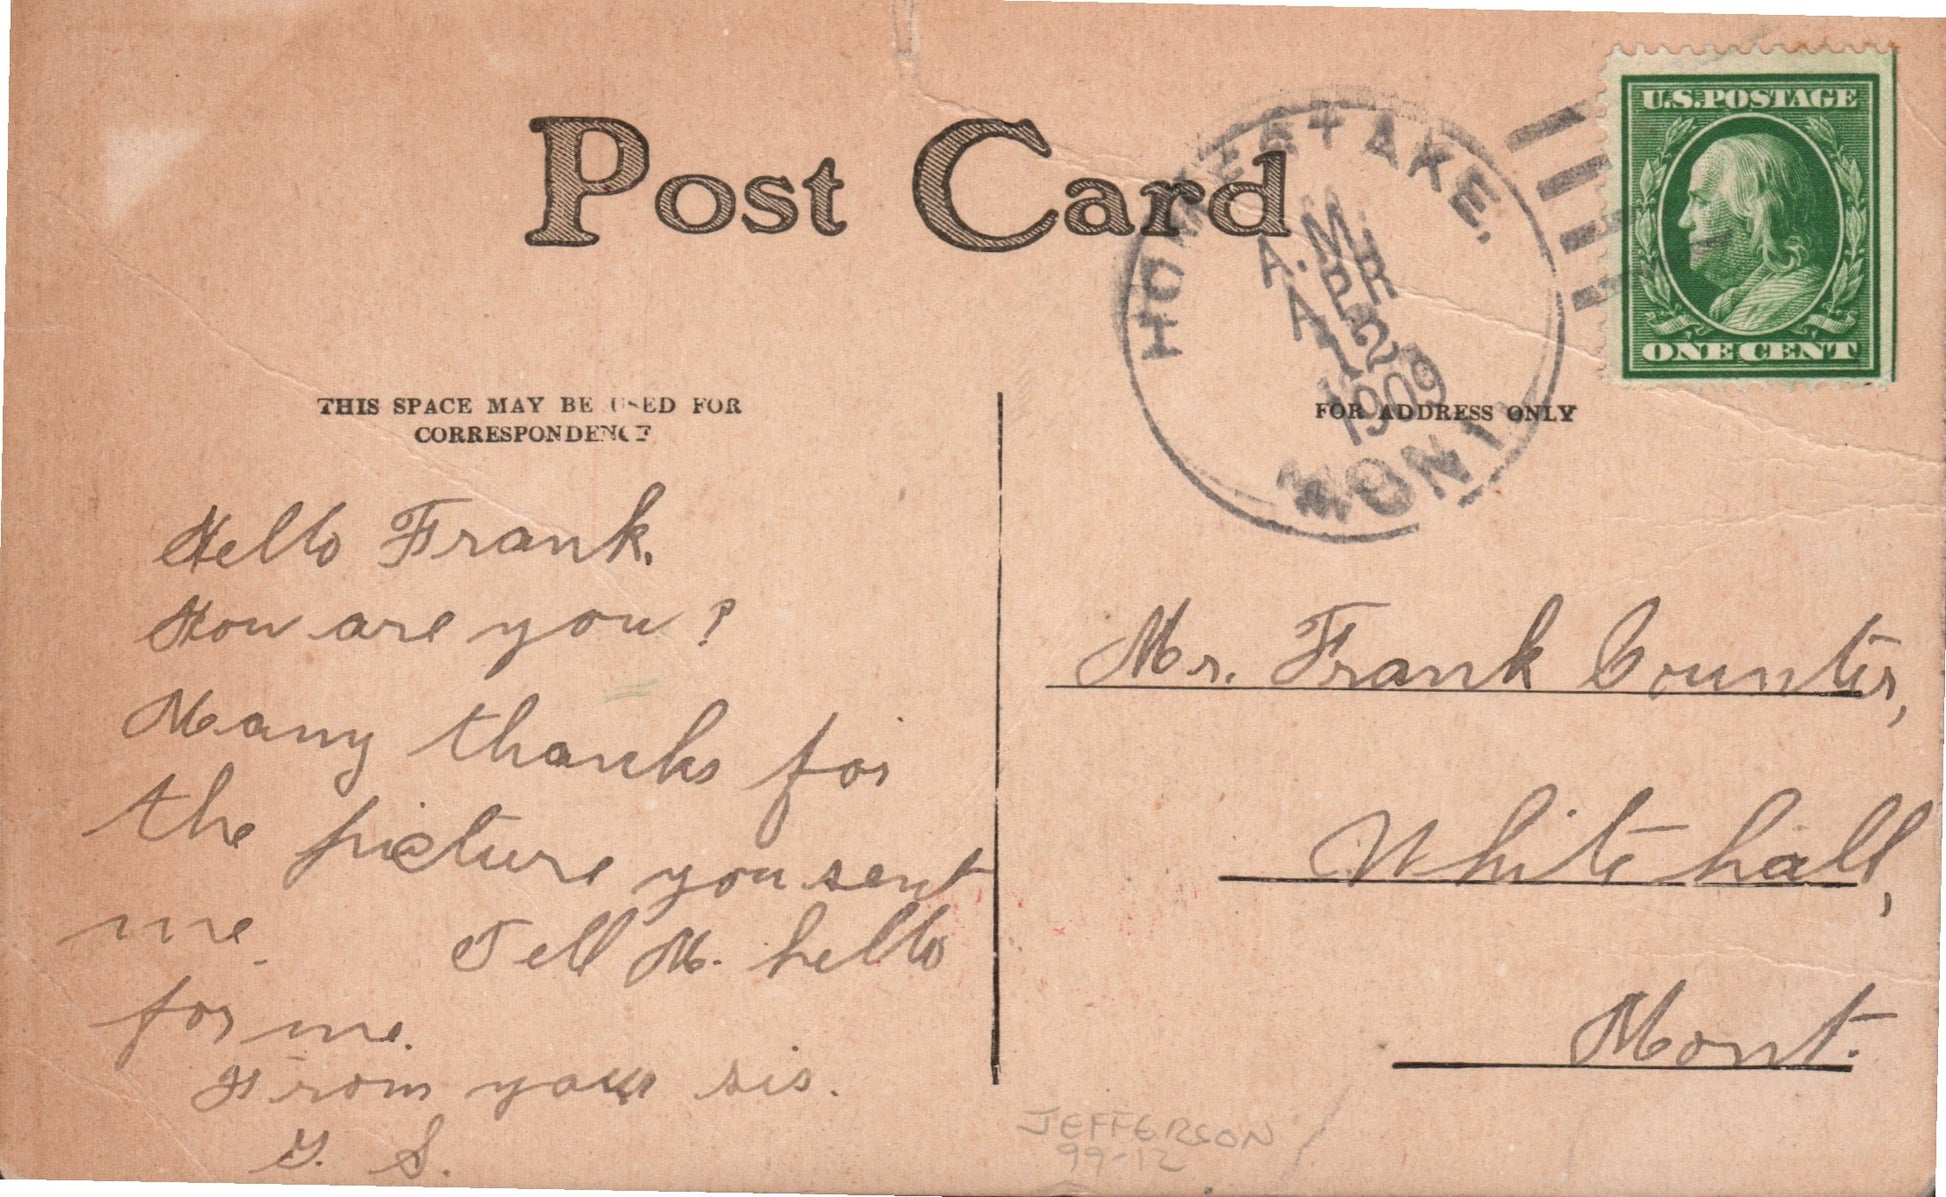 Post Card
U.S. POSTAGE
ONE CENT
HOMESTAKE,
A.M.
APR
12
1909
MONT.
THIS SPACE MAY BE USED FOR
CORRESPONDENCE
FOR ADDRESS ONLY
Hello Frank.
How are you?
Many thanks for
the picture you sent
me. Tell M. hello
for me.
From your sis.
G. S.
Mr. Frank Counter,
Whitehall,
Mont.
JEFFERSON
99-12